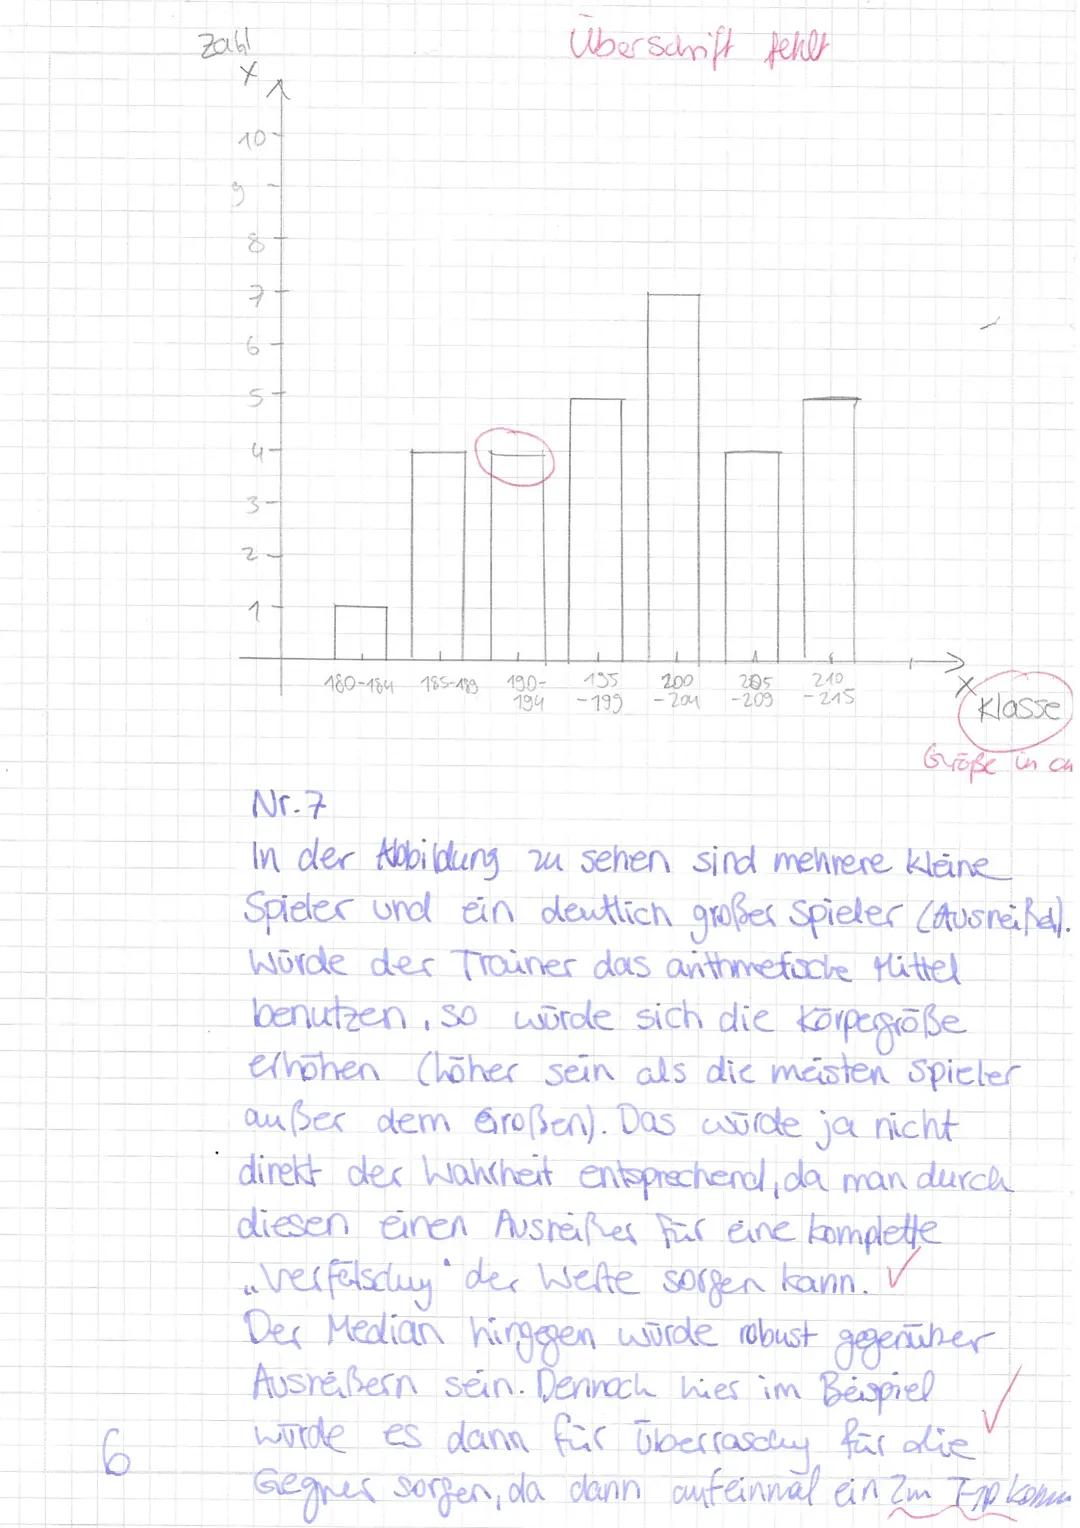 Zahl
Überschrift fehlt
X
10
9
8
7
6
5
4
3
2
1
180-184 185-189 190-194 195-199 200-204 205-209 210-215
X
Klasse
Größe in cm
Nr. 7
In der Abbildung zu sehen sind mehrere kleine
Spieler und ein deutlich großer Spieler (Ausreißer).
Würde der Trainer das arithmetische Mittel
benutzen, so würde sich die Körpergröße
erhöhen (höher sein als die meisten Spieler
außer dem Großen). Das würde ja nicht
direkt der Wahrheit entsprechend, da man durch
diesen einen Ausreißer für eine komplette
„Verfälschung" der Werte sorgen kann.
Der Median hingegen würde robust gegenüber
Ausreißern sein. Dennoch hier im Beispiel
würde es dann für Überraschung für die
6
Gegner sorgen, da dann aufeinmal ein 2m Typ